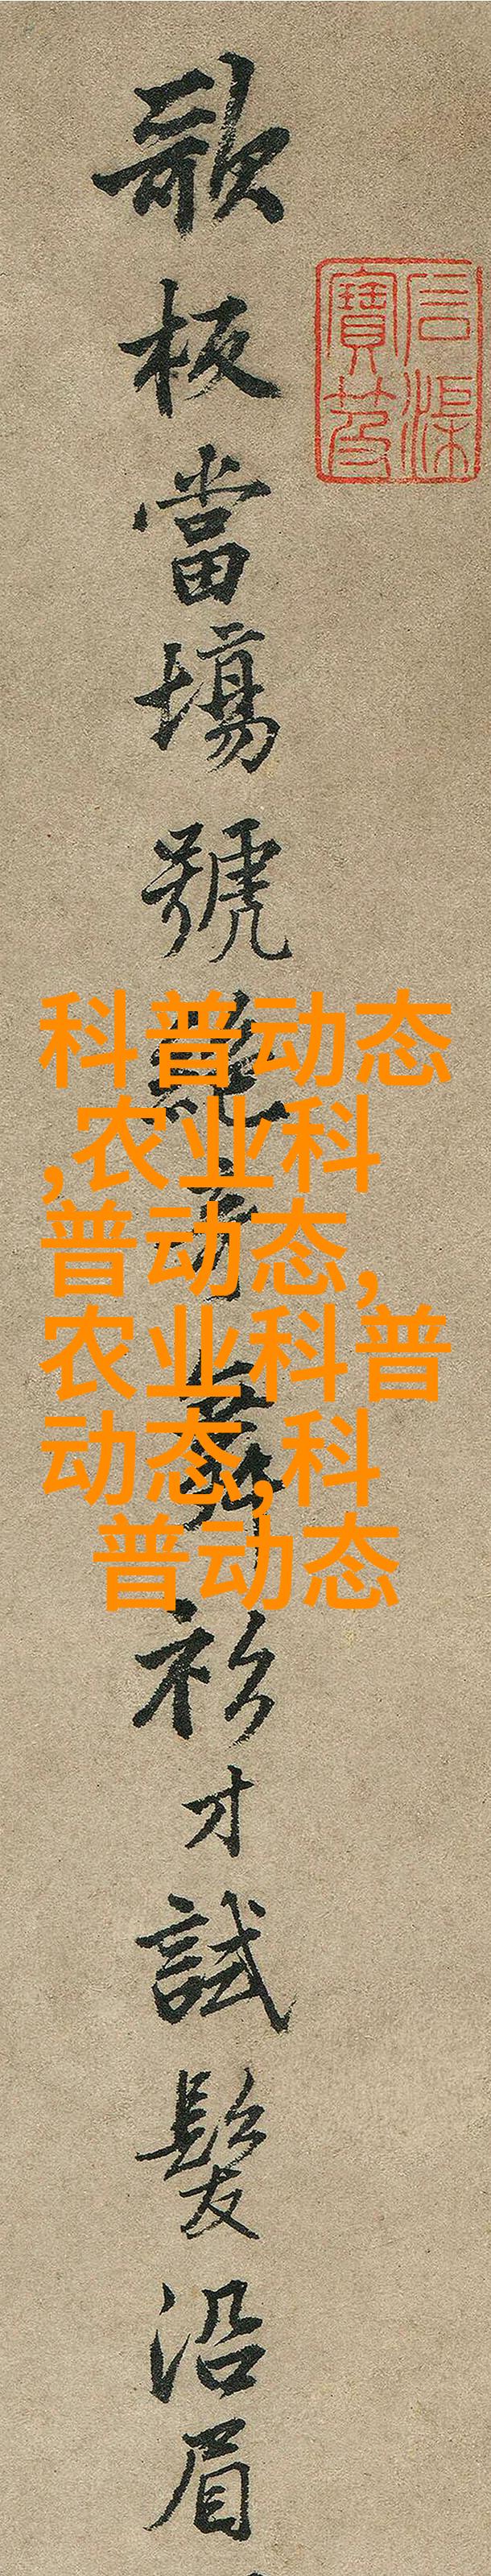 歌板當場號絕奇舞衫才試髮沿眉
信渠
寶笈
科普动态
,农业科
普动态,
农业科普
动态,科
普动态